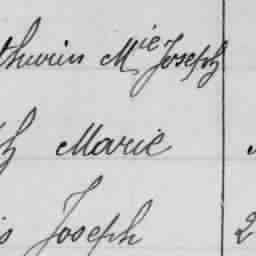 thurin Mie Joseph
th Marie
is Joseph 2